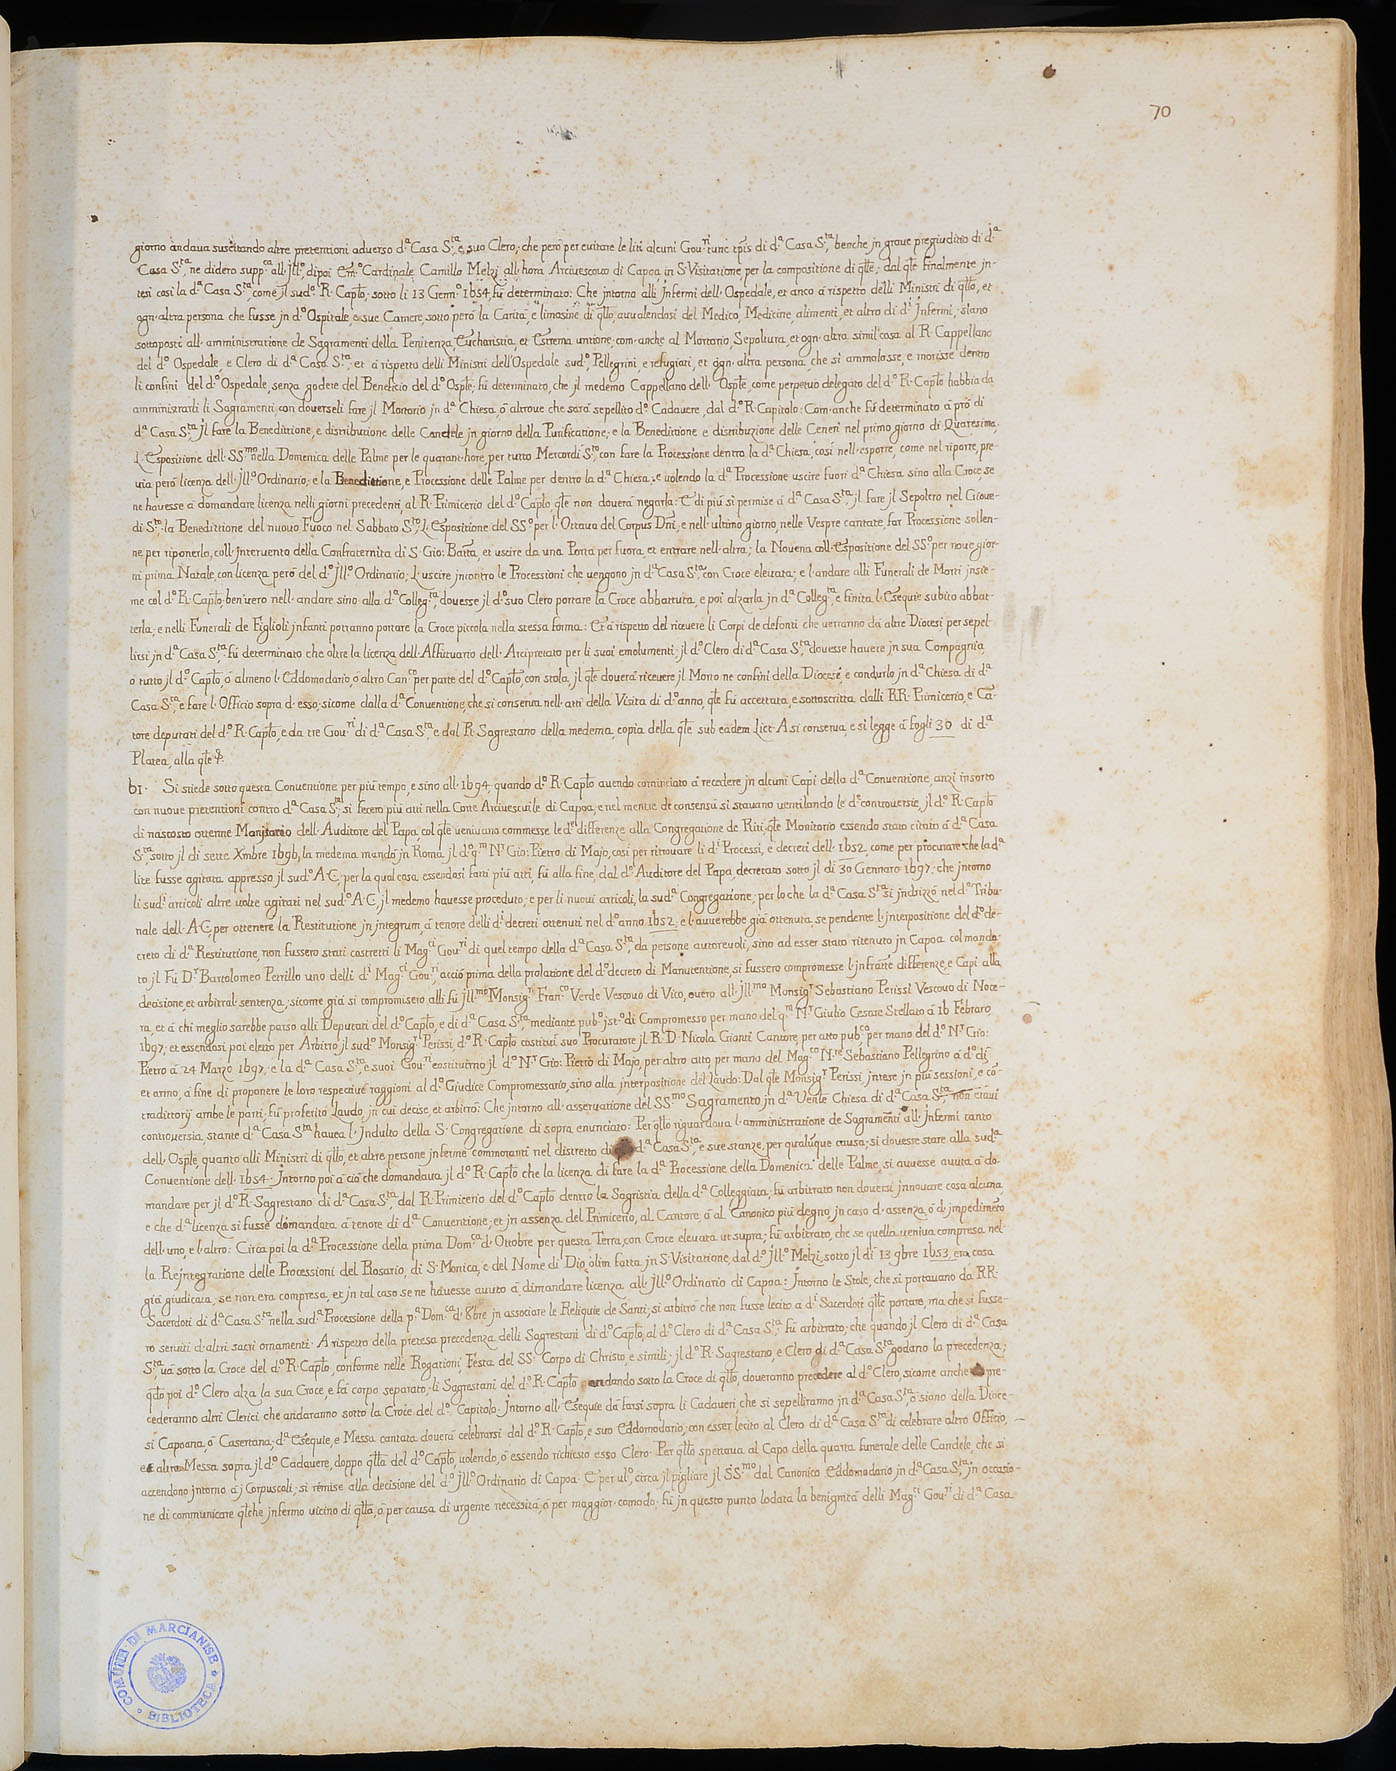 70
giorno andaua suscitando altre pretentioni aduerso d.ª Casa S.ta, e suo Clero; che però per euitare le liti alcuni Gou.ri tunc tp̄is di d.ª Casa S.ta, benche jn graue pregiuditio di d.ª
Casa S.ta, ne didero supp.ca all'Jll.º, dipoi Em.º Cardinale Camillo Melzi all'hora Arciuescouo di Capoa in S. Visitatione, per la compositione di q̄lle; dal q̄le finalmente jn-
tesi così la d.ª Casa S.ta, come jl sud.º R. Cap̄lo, sotto li 13 Genn.º 1654, fù determinato: Che jntorno alli Jnfermi dell'Ospedale, et anco à rispetto delli Ministri di q̄llo, et
ogn'altra persona che fusse jn d.º Ospitale, e sue Camere, sotto però la Carità, e limosine di q̄llo, auualendosi del Medico, Medicine, alimenti, et altro di d.i Jnfermi, siano
sottoposti all'amministratione de Sagramenti della Penitenza, Eucharistia, et Estrema untione, com'anche al Mortorio, Sepoltura, et ogn'altra simil cosa al R. Cappellano
del d.º Ospedale, e Clero di d.ª Casa S.ta, et à rispetto delli Ministri dell'Ospedale sud.º, Pellegrini, e refugiati, et ogn'altra persona, che si ammalasse, e morisse dentro
li confini del d.º Ospedale, senza godere del Beneficio del d.º Osple; fù determinato, che jl medemo Cappellano dell'Osple, come perpetuo delegato del d.º R. Cap̄lo habbia da
amministrarli li Sagramenti, con douerseli fare jl Mortorio jn d.ª Chiesa, ò altroue che sarà sepellito d.º Cadauere, dal d.º R. Capitolo: Com'anche fù determinato à prò di
d.ª Casa S.ta jl fare la Benedittione, e distributione delle Candele jn giorno della Purificatione; e la Benedittione e distribuzione delle Ceneri nel primo giorno di Quaresima,
L'Espositione dell'SS.mo nella Domenica delle Palme per le quarant'hore, per tutto Mercordì S.to, con fare la Processione dentro la d.ª Chiesa, così nell'esporre, come nel riporre, pre-
uia però licenza dell'Jll.º Ordinario; e la Benedittione, e Processione delle Palme per dentro la d.ª Chiesa; e uolendo la d.ª Processione uscire fuori d.ª Chiesa sino alla Croce, se
ne hauesse à domandare licenza nelli giorni precedenti, al R. Primicerio del d.º Cap̄lo, q̄le non douerà negarla: E di più si permise à d.ª Casa S.ta jl fare jl Sepolcro nel Gioue-
dì S.to, la Benedittione del nuouo Fuoco nel Sabbato S.to, L'Espositione del SS.º per l'Ottaua del Corpus Dn̄i, e nell'ultimo giorno, nelle Vespre cantate, far Processione sollen-
ne per riponerlo, coll'Jnteruento della Confraternita di S. Gio: Batt̄a, et uscire da una Porta per fuora, et entrare nell'altra; la Nouena coll'Espositione del SS.º per noue gior-
ni prima Natale, con licenza però del d.º Jll.º Ordinario; L'uscire jncontro le Processioni che uengono jn d.ª Casa S.ta, con Croce eleuata; e l'andare alli Funerali de Morti jnsie-
me col d.º R. Cap̄lo, ben uero nell'andare sino alla d.ª Colleg.ta, douesse jl d.º suo Clero portare la Croce abbattuta, e poi alzarla jn d.ª Colleg.ta, e finita l'Esequie subito abbat-
terla; e nelli Funerali de Figlioli jnfanti potranno portare la Croce piccola nella stessa forma: Et à rispetto del riceuere li Corpi de defonti che uerranno da altre Diocesi per sepel-
lirsi jn d.ª Casa S.ta, fù determinato che oltre la licenza dell'Affittuario dell'Arcipretato per li suoi emolumenti; jl d.º Clero di d.ª Casa S.ta, douesse hauere jn sua Compagnia,
ò tutto jl d.º Cap̄lo, ò almeno l'Eddomodario, ò altro Can.co per parte del d.º Cap̄lo, con stola, jl q̄le douerà riceuere jl Morto ne confini della Diocesi, e condurlo jn d.ª Chiesa di d.ª
Casa S.ta, e fare l'Officio sopra d'esso; sicome dalla d.ª Conuentione, che si conserua nell'atti della Visita di d.º anno, q̄le fù accettata, e sottoscritta dalli RR. Primicerio, e Can-
tore deputati del d.º R. Cap̄lo, e da tre Gou.ri di d.ª Casa S.ta, e dal R. Sagrestano della medema, copia della q̄le sub eadem Lict. A si conserua, e si legge à fogli 30 di d.ª
Platea, alla q̄le &.
61. Si stiede sotto questa Conuentione per più tempo, e sino all'1694 quando d.º R. Cap̄lo auendo cominciato à recedere jn alcuni Capi della d.ª Conuentione, anzi insorto
con nuoue pretentioni contro d.ª Casa S.ta, si fecero più atti nella Corte Arciuescouile di Capoa; e nel mentre de consensu si stauano uentilando le d.e controuersie, jl d.º R. Cap̄lo
di nascosto ottenne Monitorio dell'Auditore del Papa, col q̄le ueniuano commesse le d.e differenze alla Congregatione de Riti, q̄le Monitorio essendo stato citato à d.ª Casa
S.ta, sotto jl dì sette Xmbre 1696, la medema mandò jn Roma jl d.º q.m N.r Gio: Pietro di Majo, così per ritrouare li d.i Processi, e decreti dell'1652, come per procurare che la d.ª
lite fusse agitata appresso jl sud.º A.C; per la qual cosa essendosi fatti più atti, fù alla fine, dal d.º Auditore del Papa, decretato sotto jl dì 30 Gennaro 1697: che jntorno
li sud.i articoli altre uolte agitati nel sud.º A.C, jl medemo hauesse proceduto; e per li nuoui articoli, la sud.ª Congregatione; per lo che la d.ª Casa S.ta si jndrizzò nel d.º Tribu-
nale dell'A.C, per ottenere la Restitutione jn jntegrum, à tenore delli d.i decreti ottenuti nel d.º anno 1652, e l'auuerebbe già ottenuta, se pendente l'interpositione del d.º de-
creto di d.ª Restitutione, non fussero stati costretti li Mag.ci Gou.ri di quel tempo della d.ª Casa S.ta, da persone autoreuoli, sino ad esser stato ritenuto jn Capoa col manda-
to jl Fù D.r Bartolomeo Perrillo uno delli d.i Mag.ci Gou.ri, acciò prima della prolatione del d.º decreto di Manutentione, si fussero compromesse l'jnfratte differenze, e Capi alla
decisione, et arbitral sentenza, sicome già si compromisero alli fù Jll.mo Monsig.ri Fran.co Verde Vescouo di Vico, ouero all'Jll.mo Monsig.r Sebastiano Perissi Vescouo di Noce-
ra, et à chi meglio sarebbe parso alli Deputati del d.º Cap̄lo, e di d.ª Casa S.ta, mediante pub.º jst.º di Compromesso per mano del q.m N.r Giulio Cesare Stellato à 16 Febraro
1697; et essendosi poi eletto per Arbitro jl sud.º Monsig.r Perissi, d.º R. Cap̄lo costituì suo Procuratore jl R. D. Nicola Gionti Cantore, per atto pub.co, per mano del d.º N.r Gio:
Pietro à 24 Marzo 1697; e la d.ª Casa S.ta, e suoi Gou.ri costituirno jl d.º N.r Gio: Pietro di Majo, per altro atto, per mano del Mag.co N.re Sebastiano Pellegrino à d.º dì
et anno, à fine di proponere le loro respectiue raggioni al d.º Giudice Compromessario, sino alla jnterpositione del Laudo: Dal q̄le Monsig.r Perissi jntese jn più sessioni, e con-
tradittorij ambe le parti, fù proferito Laudo, jn cui decise, et arbitrò: Che jntorno all'asseruatione del SS.mo Sagramento jn d.ª Ven̄le Chiesa di d.ª Casa S.ta, non eraui
controuersia, stante d.ª Casa S.ta hauea l'Jndulto della S. Congregatione di sopra enunciato: Per q̄llo riguardaua l'amministratione de Sagramenti all'Jnfermi tanto
dell'Osple, quanto alli Ministri di q̄llo, et altre persone jnferme commoranti nel distretto di d.ª Casa S.ta, e sue stanze, per qualunque causa; si douesse stare alla sud.ª
Conuentione dell'1654. Jntorno poi à ciò che domandaua jl d.º R. Cap̄lo che la licenza di fare la d.ª Processione della Domenica delle Palme, si auuesse auuta à do-
mandare per jl d.º R. Sagrestano di d.ª Casa S.ta, dal R. Primicerio del d.º Cap̄lo dentro la Sagristia della d.ª Colleggiata, fù arbitrato non douersi jnnouare cosa alcuna
e che d.ª licenza si fusse domandata à tenore di d.ª Conuentione; et jn assenza del Primicerio, al Cantore, ò al Canonico più degno, jn caso d'assenza, ò d'impedimēto
dell'uno, e l'altro: Circa poi la d.ª Processione della prima Dom.ca d'Ottobre per questa Terra, con Croce eleuata ut supra; fù arbitrato, che se quella ueniua compresa nel-
la Rejntegratione delle Processioni del Rosario, di S. Monica, e del Nome di Dio, olim fatta jn S. Visitatione, dal d.º Jll.º Melzi, sotto jl dì 13 9bre 1653, era cosa
già giudicata, se non era compresa, et jn tal caso se ne hauesse auuto à dimandare licenza all'Jll.º Ordinario di Capoa: Jntorno le Stole, che si portauano da RR.
Sacerdoti di d.ª Casa S.ta nella sud.ª Processione della p.ª Dom.ca d'8bre jn associare le Reliquie de Santi; si arbitrò che non fusse lecito à d.i Sacerdoti q̄lle portare, ma che si fusse-
ro seruiti d'altri sacri ornamenti. A rispetto della pretesa precedenza delli Sagrestani di d.º Cap̄lo, al d.º Clero di d.ª Casa S.ta; fù arbitrato; che quando jl Clero di d.ª Casa
S.ta, và sotto la Croce del d.º R. Cap̄lo, conforme nelle Rogationi, Festa del SS. Corpo di Christo, e simili; jl d.º R. Sagrestano, e Clero di d.ª Casa S.ta godano la precedenza;
q̄do poi d.º Clero alza la sua Croce, e fà corpo separato; li Sagrestani del d.º R. Cap̄lo andando sotto la Croce di q̄llo, doueranno precedere al d.º Clero, sicome anche pre-
cederanno altri Clerici che andaranno sotto la Croce del d.º Capitolo. Jntorno all'Esequie da farsi sopra li Cadaueri, che si sepelliranno jn d.ª Casa S.ta, ò siano della Dioce-
si Capoana, ò Casertana; d.ª Esequie, e Messa cantata douerà celebrarsi dal d.º R. Cap̄lo, e suo Eddomodario, con esser lecito al Clero di d.ª Casa S.ta di celebrare altro Officio,
et altra Messa sopra jl d.º Cadauere, doppo q̄lla del d.º Cap̄lo, uolendo, ò essendo richiesto esso Clero. Per q̄llo spettaua al Capo della quarta funerale delle Candele, che si
accendono jntorno à j Corpuscoli; si remise alla decisione del d.º Jll.º Ordinario di Capoa. E per ul.º, circa jl pigliare jl SS.mo dal Canonico Eddomodario jn d.ª Casa S.ta, jn occasio-
ne di communicare q̄lche jnfermo uicino di q̄lla, ò per causa di urgente necessità, ò per maggior comodo: fù jn questo punto lodata la benignità delli Mag.ci Gou.ri di d.ª Casa
COMUNE DI MARCIANISE
BIBLIOTECA